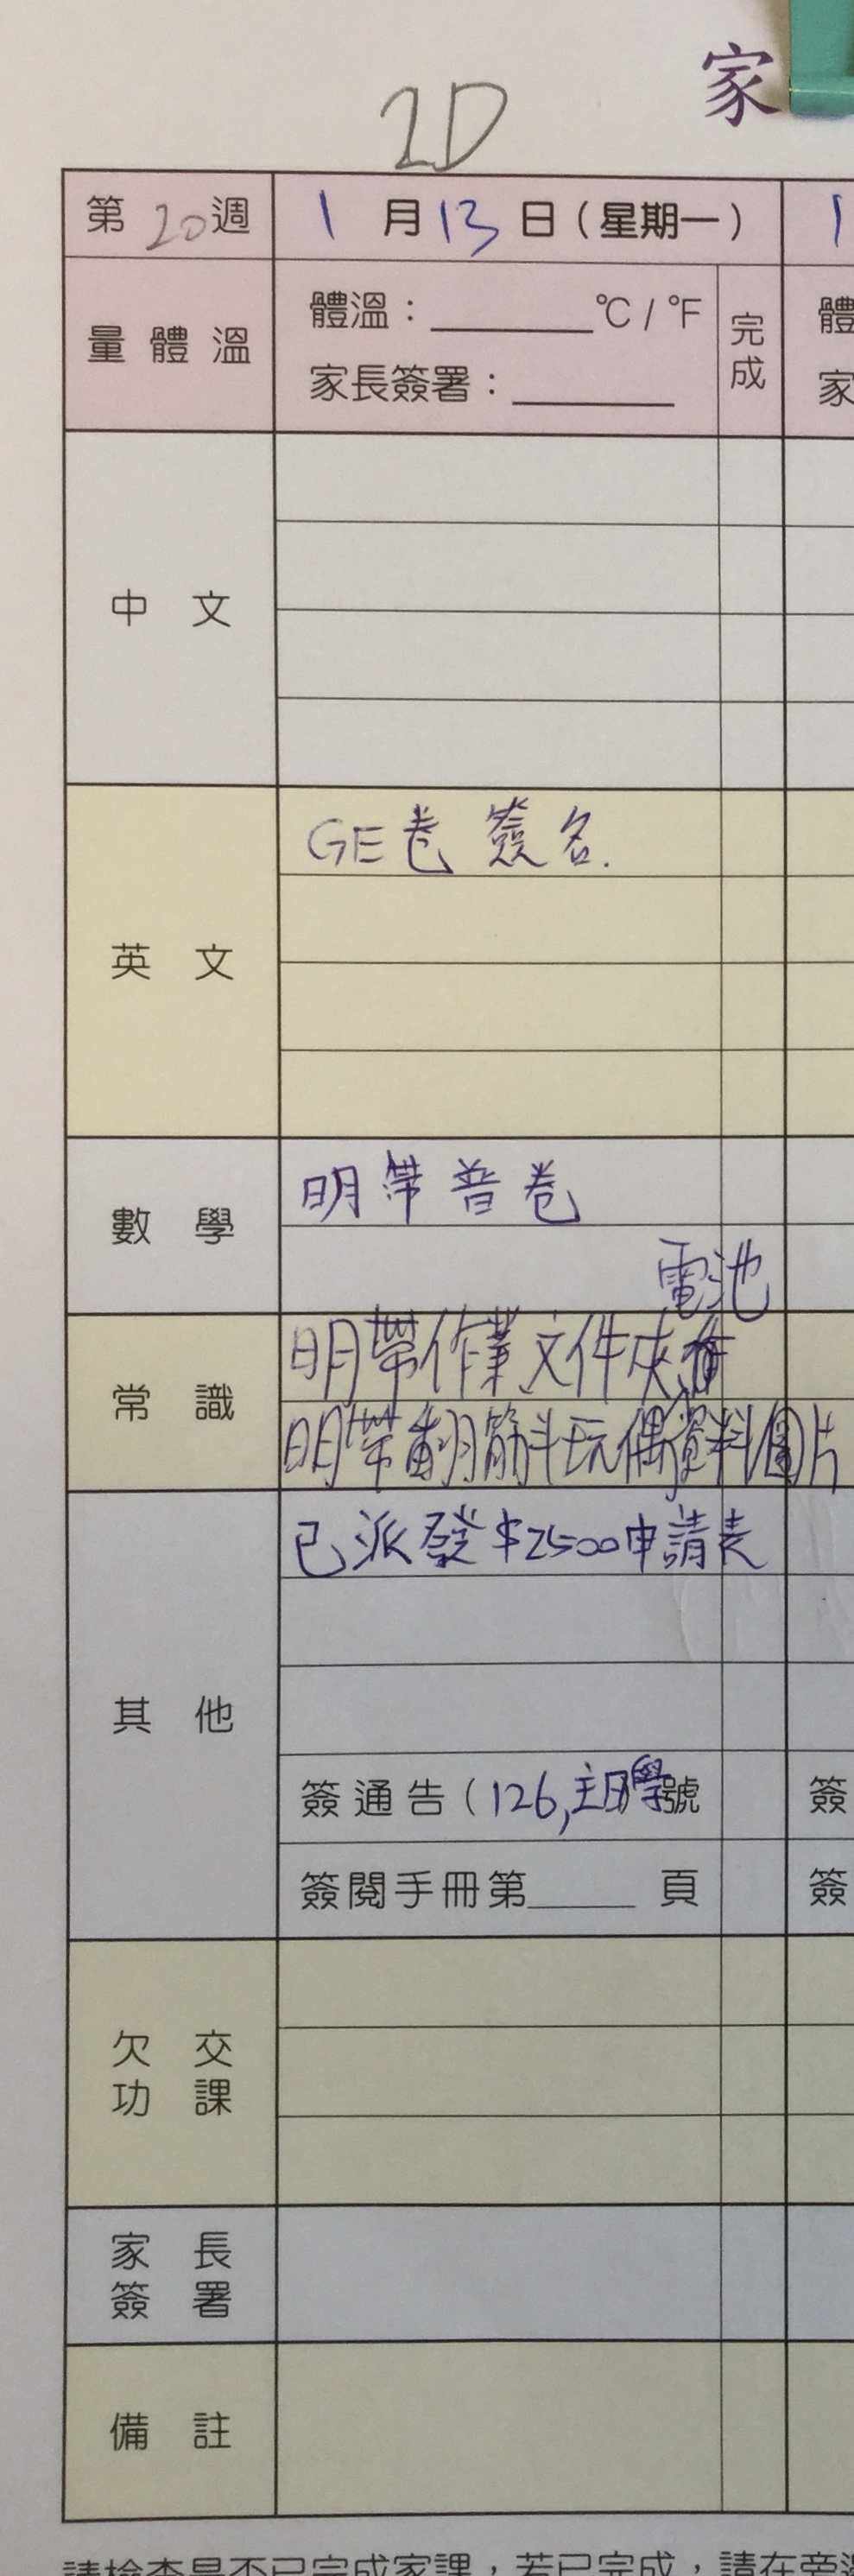 家
2D
第 20 週 1 月 13 日（星期一） 1
量體溫 體溫：______°C / °F 完成 體
家長簽署：______ 家
中 文
英 文 GE卷 簽名.
數 學 明帶普卷
電池
常 識 明帶作業文件夾
明帶翻筋斗玩偶資料/圖片
其 他 已派發$2500申請表
簽通告（126,主日學號 簽
簽閱手冊第____ 頁 簽
欠 交
功 課
家 長
簽 署
備 註
請檢查是否已完成家課，若已完成，請在旁